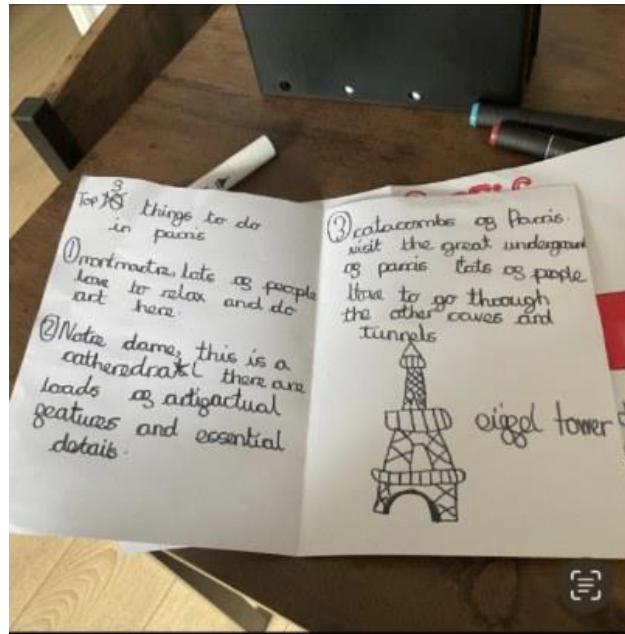 Top 3 things to do
in paris
① montmartre, lots of people
love to relax and do
art here.
② Notre dame, this is a
cathedral there are
loads of artifactual
features and essential
details.
③ catacombs of Parris.
visit the great underground
of parris lots of people
love to go through
the other caves and
tunnels
eiffel tower